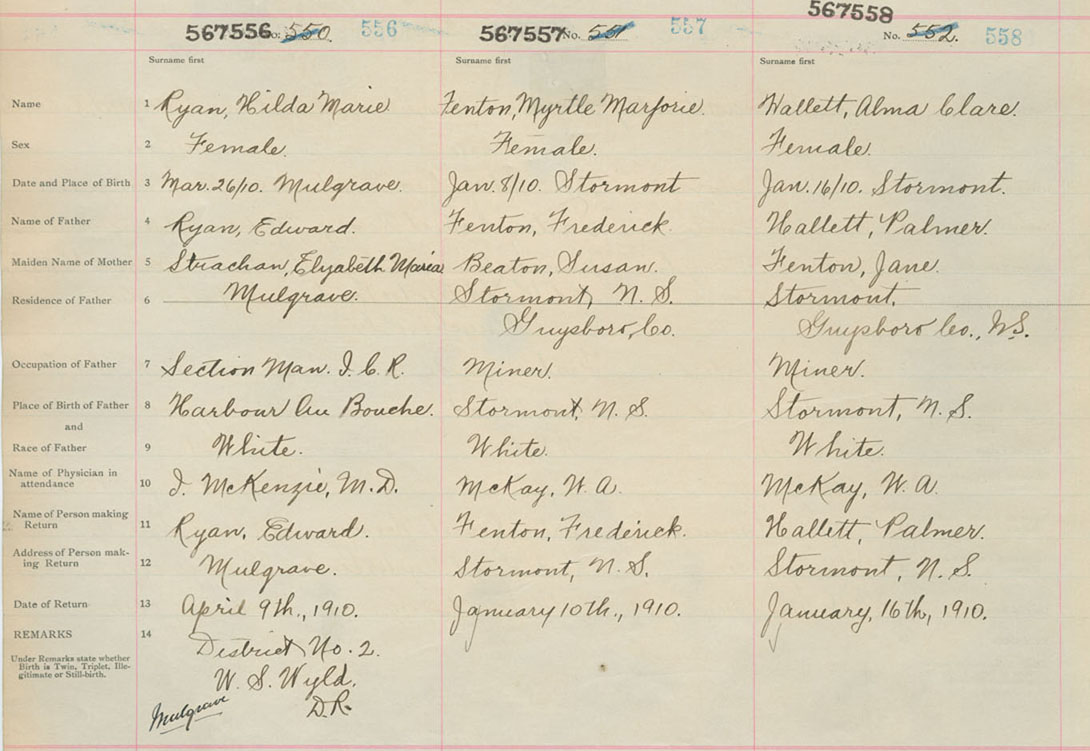 567556 No. 550 556 567557 No. 551 557 567558 No. 552. 558
Surname first Surname first Surname first
Name 1 Ryan, Hilda Marie Fenton, Myrtle Marjorie. Hallett, Alma Clare.
Sex 2 Female. Female. Female.
Date and Place of Birth 3 Mar. 26/10. Mulgrave. Jan. 8/10. Stormont Jan. 16/10. Stormont.
Name of Father 4 Ryan, Edward. Fenton, Frederick. Hallett, Palmer.
Maiden Name of Mother 5 Strachan, Elyzabeth Maria Beaton, Susan. Fenton, Jane.
Residence of Father 6 Mulgrave. Stormont, N. S. Stormont,
Guysboro, Co. Guysboro Co., N.S.
Occupation of Father 7 Section Man. I. C. R. Miner. Miner.
Place of Birth of Father 8 Harbour Au Bouche. Stormont, N. S. Stormont, N. S.
and
Race of Father 9 White. White. White.
Name of Physician in
attendance 10 J. McKenzie, M. D. McKay, W. A. McKay, W. A.
Name of Person making
Return 11 Ryan, Edward. Fenton, Frederick. Hallett, Palmer.
Address of Person mak-
ing Return 12 Mulgrave. Stormont, N. S. Stormont, N. S.
Date of Return 13 April 9th., 1910. January 10th., 1910. January, 16th, 1910.
REMARKS 14 District No. 2.
Under Remarks state whether
Birth is Twin, Triplet, Ille-
gitimate or Still-birth.
W. S. Wyld.
D. R.
Mulgrave